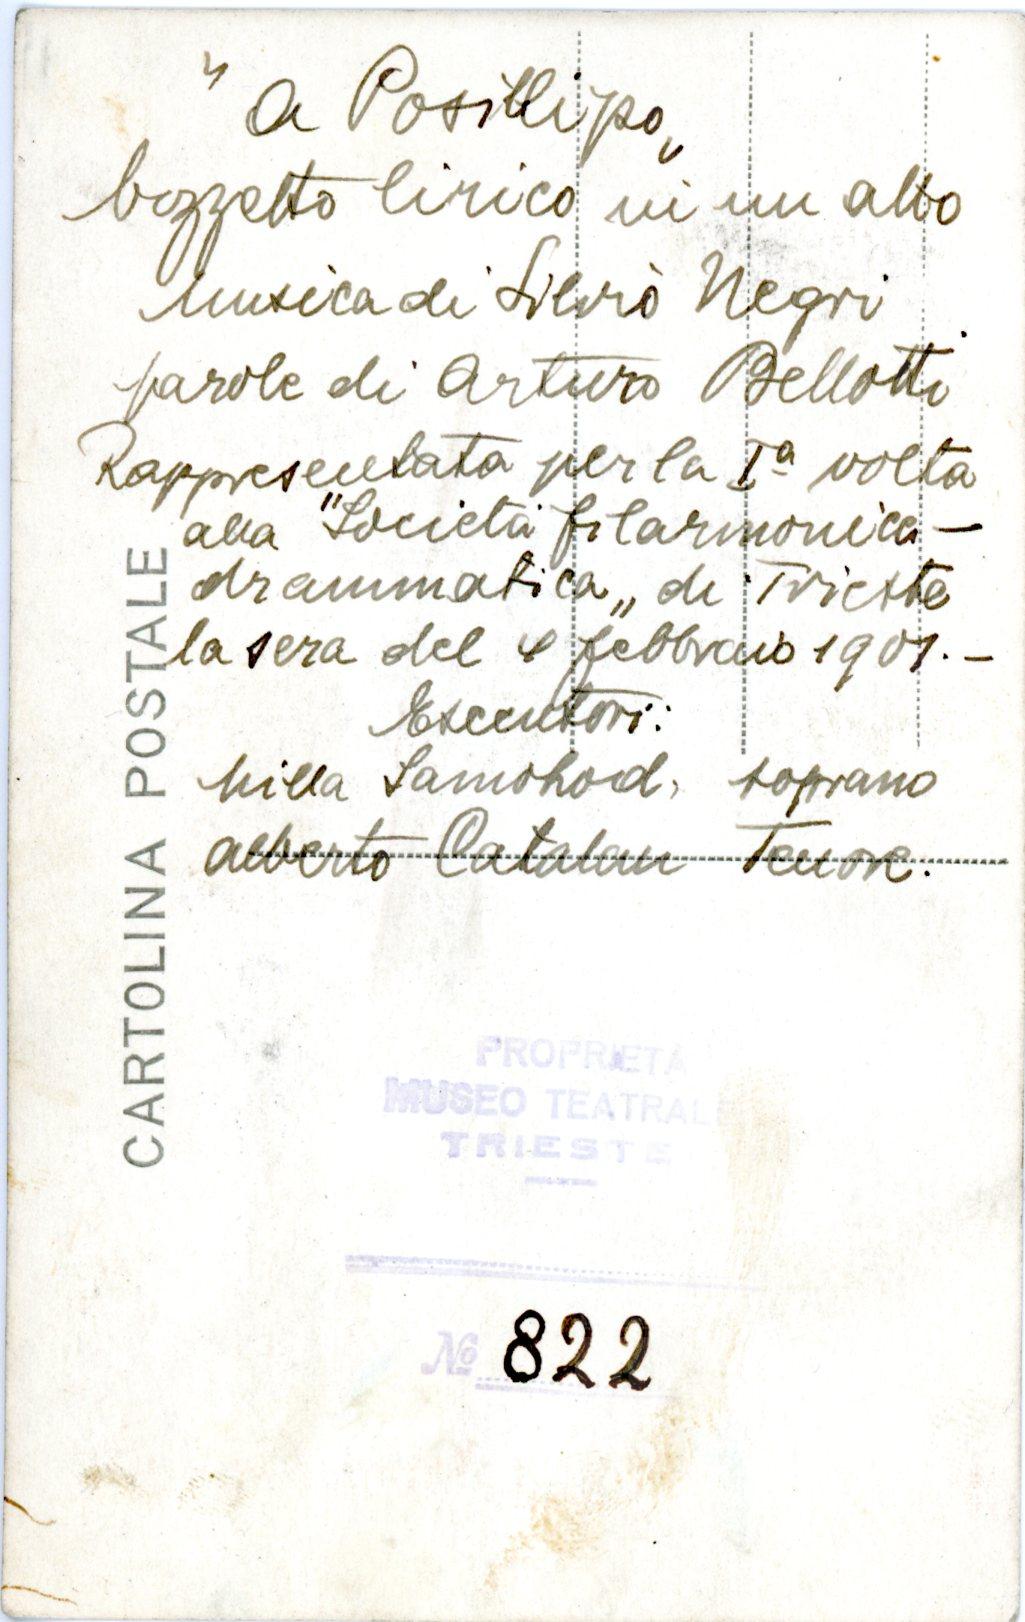 "A Posillipo„
bozzetto lirico in un atto
musica di Silvio Negri
parole di Arturo Bellotti
Rappresentata per la Iª volta
alla "Società filarmonica-
drammatica„ di Trieste
la sera del 4 febbraio 1901.-
Esecutori:
Milla Samohod, soprano
Alberto Catalan Tenore.
CARTOLINA POSTALE
PROPRIETÀ
MUSEO TEATRALE
TRIESTE
No 822